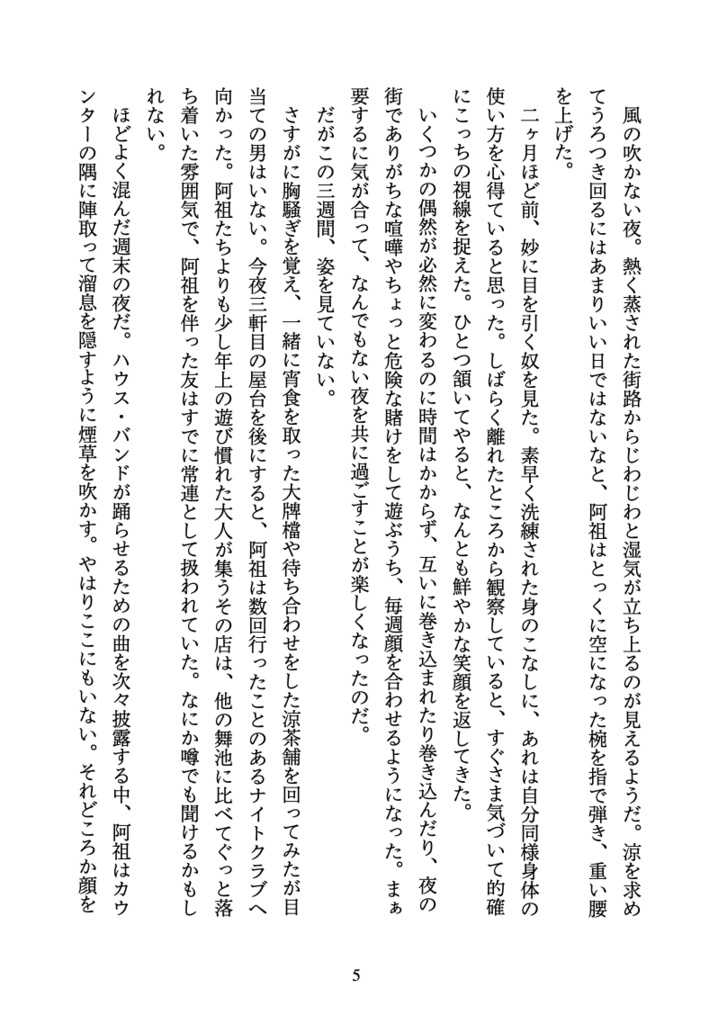 風の吹かない夜。熱く蒸された街路からじわじわと湿気が立ち上るのが見えるようだ。涼を求め
てうろつき回るにはあまりいい日ではないなと、阿祖はとっくに空になった椀を指で弾き、重い腰
を上げた。
二ヶ月ほど前、妙に目を引く奴を見た。素早く洗練された身のこなしに、あれは自分同様身体の
使い方を心得ていると思った。しばらく離れたところから観察していると、すぐさま気づいて的確
にこっちの視線を捉えた。ひとつ頷いてやると、なんとも鮮やかな笑顔を返してきた。
いくつかの偶然が必然に変わるのに時間はかからず、互いに巻き込まれたり巻き込んだり、夜の
街でありがちな喧嘩やちょっと危険な賭けをして遊ぶうち、毎週顔を合わせるようになった。まぁ
要するに気が合って、なんでもない夜を共に過ごすことが楽しくなったのだ。
だがこの三週間、姿を見ていない。
さすがに胸騒ぎを覚え、一緒に宵食を取った大牌檔や待ち合わせをした涼茶舗を回ってみたが目
当ての男はいない。今夜三軒目の屋台を後にすると、阿祖は数回行ったことのあるナイトクラブへ
向かった。阿祖たちよりも少し年上の遊び慣れた大人が集うその店は、他の舞池に比べてぐっと落
ち着いた雰囲気で、阿祖を伴った友はすでに常連として扱われていた。なにか噂でも聞けるかもし
れない。
ほどよく混んだ週末の夜だ。ハウス・バンドが踊らせるための曲を次々披露する中、阿祖はカウ
ンターの隅に陣取って溜息を隠すように煙草を吹かす。やはりここにもいない。それどころか顔を
5